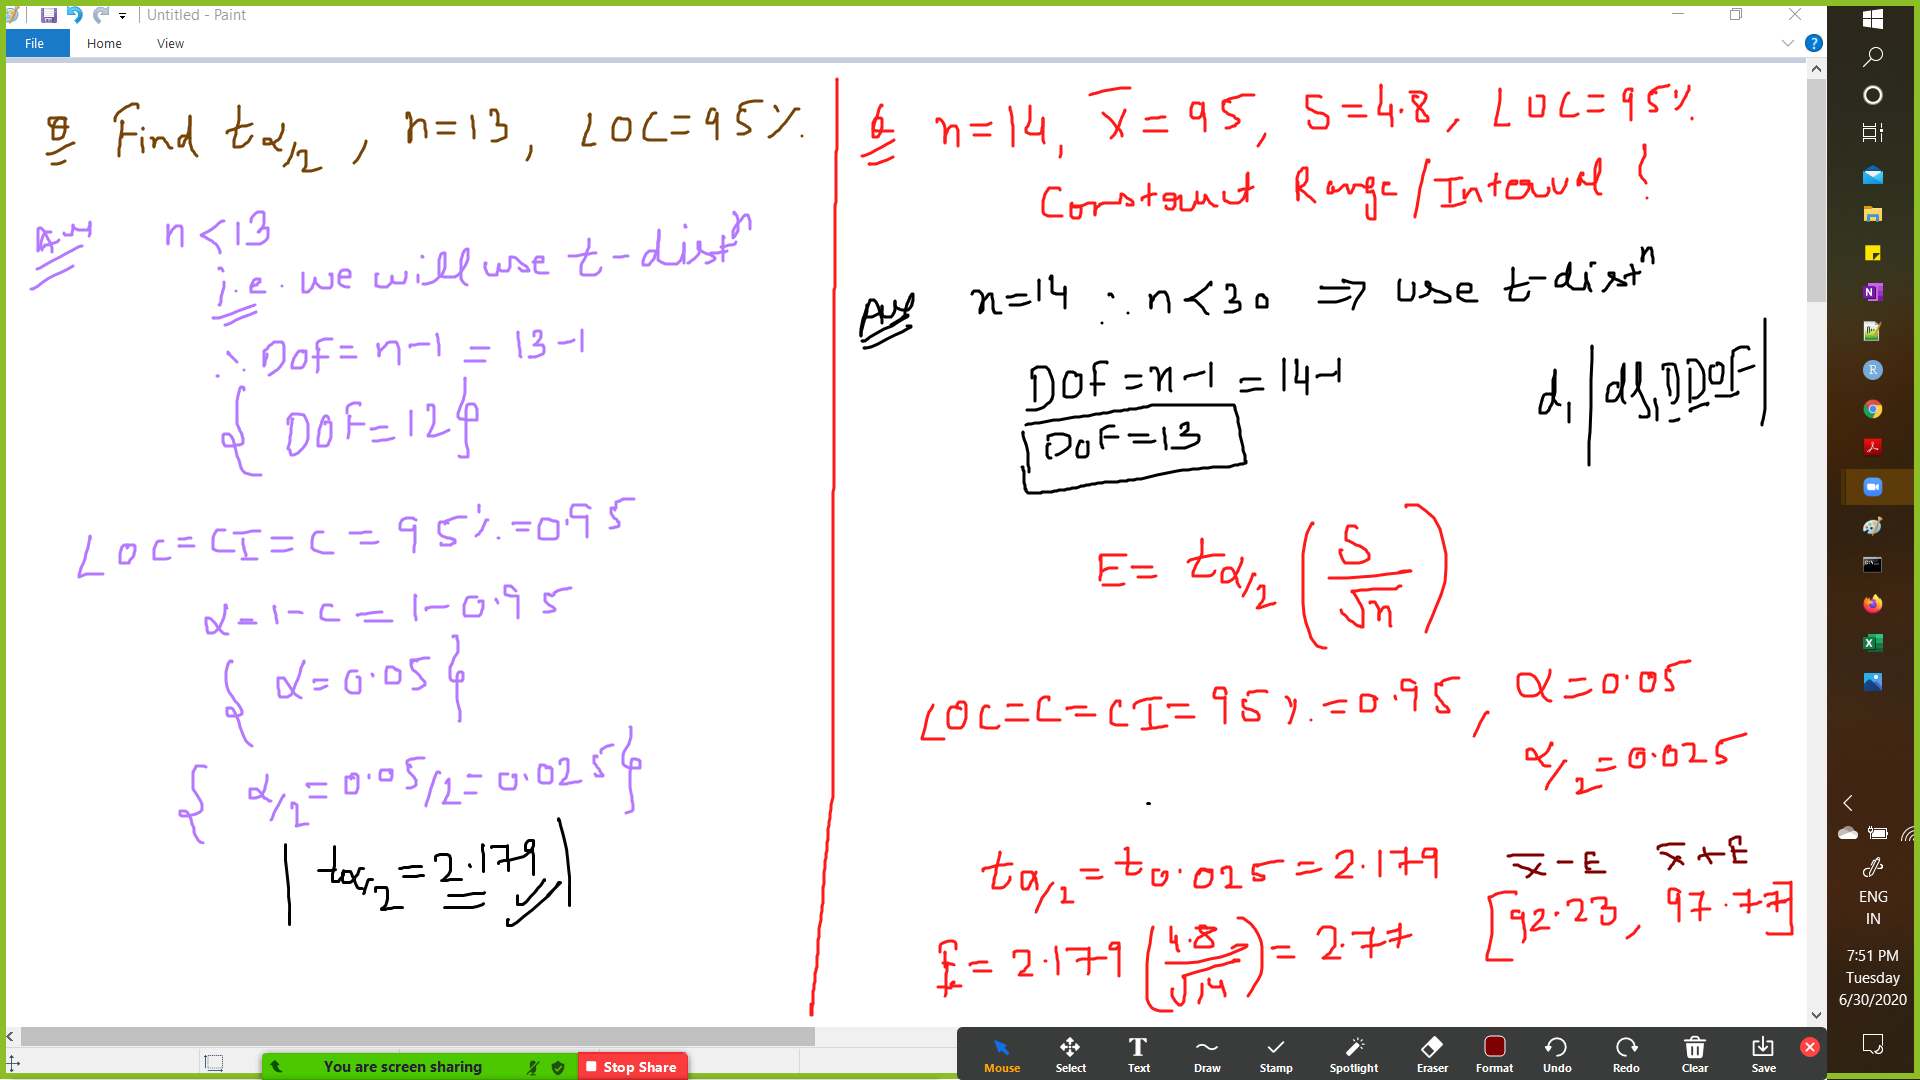 Untitled - Paint
File Home View
Q Find tα/2, n=13, LOC=95%.
Ans n<13
i.e. we will use t-distⁿ
∴ DOF= n-1 = 13-1
{ DOF=12 }
LOC=CI=C=95%.=0.95
α=1-C=1-0.95
{ α=0.05 }
{ α/2=0.05/2=0.025 }
| tα/2=2.179 |
Q n=14, X̅=95, S=4.8, LOC=95%.
Construct Range/Interval ?
Ans n=14 ∴ n<30 ⇒ use t-distⁿ
DOF=n-1=14-1
DOF=13
d1 | df, DDOF |
E= tα/2 (S/√n)
LOC=C=CI=95%.=0.95, α=0.05
α/2=0.025
tα/2=t0.025=2.179
x̅-E x̅+E
[92.23, 97.77]
E=2.179 (4.8/√14)=2.77
ENG
IN
7:51 PM
Tuesday
6/30/2020
You are screen sharing Stop Share
Mouse Select Text Draw Stamp Spotlight Eraser Format Undo Redo Clear Save